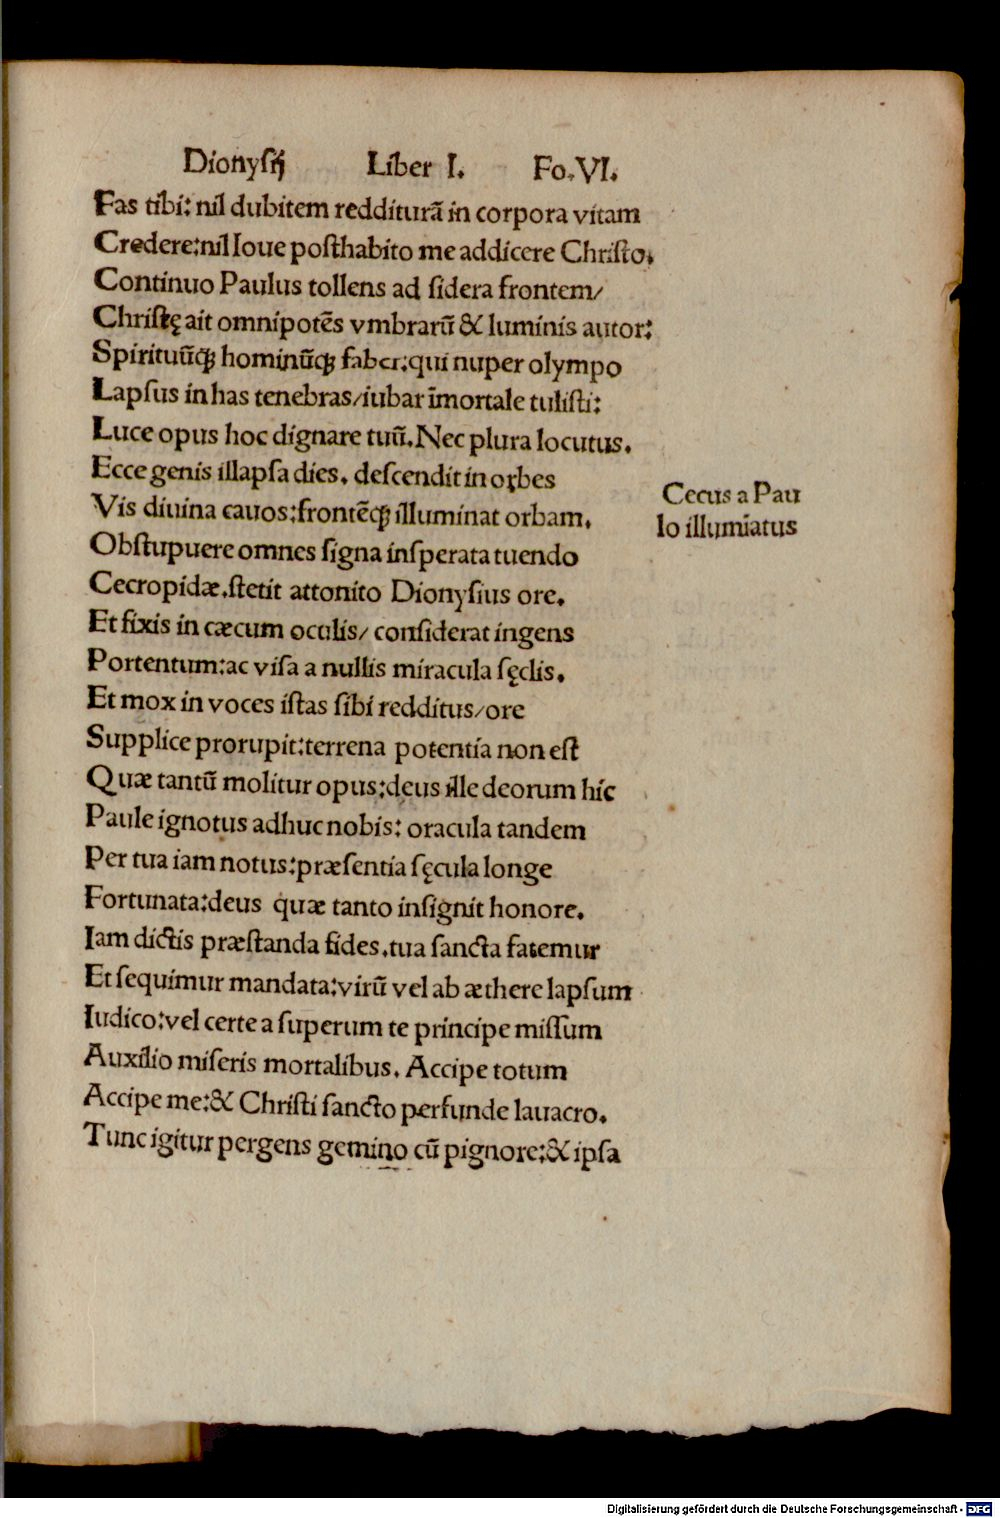 Dionysij Liber I. Fo.VI.
Fas tibi: nil dubitem redditurā in corpora vitam
Credere:nil Ioue posthabito me addicere Christo.
Continuo Paulus tollens ad sidera frontem/
Christę ait omnipotēs vmbrarū & luminis autor:
Spirituūqꝫ hominūqꝫ faber:qui nuper olympo
Lapsus in has tenebras/iubar īmortale tulisti:
Luce opus hoc dignare tuū.Nec plura locutus.
Ecce genis illapsa dies. descendit in orbes
Vis diuina cauos:frontēqꝫ illuminat orbam.
Obstupuere omnes signa insperata tuendo
Cecropidæ.stetit attonito Dionysius ore.
Et fixis in cæcum oculis/ considerat ingens
Portentum:ac visa a nullis miracula sęclis.
Et mox in voces istas sibi redditus/ore
Supplice prorupit:terrena potentia non est
Quæ tantū molitur opus:deus ille deorum hic
Paule ignotus adhuc nobis: oracula tandem
Per tua iam notus:præsentia sęcula longe
Fortunata:deus quæ tanto insignit honore.
Iam dictis præstanda fides.tua sancta fatemur
Et sequimur mandata:virū vel ab æthere lapsum
Iudico:vel certe a superum te principe missum
Auxilio miseris mortalibus. Accipe totum
Accipe me:& Christi sancto perfunde lauacro.
Tunc igitur pergens gemino cū pignore:& ipsa
Cecus a Pau
lo illumīatus
Digitalisierung gefördert durch die Deutsche Forschungsgemeinschaft - DFG